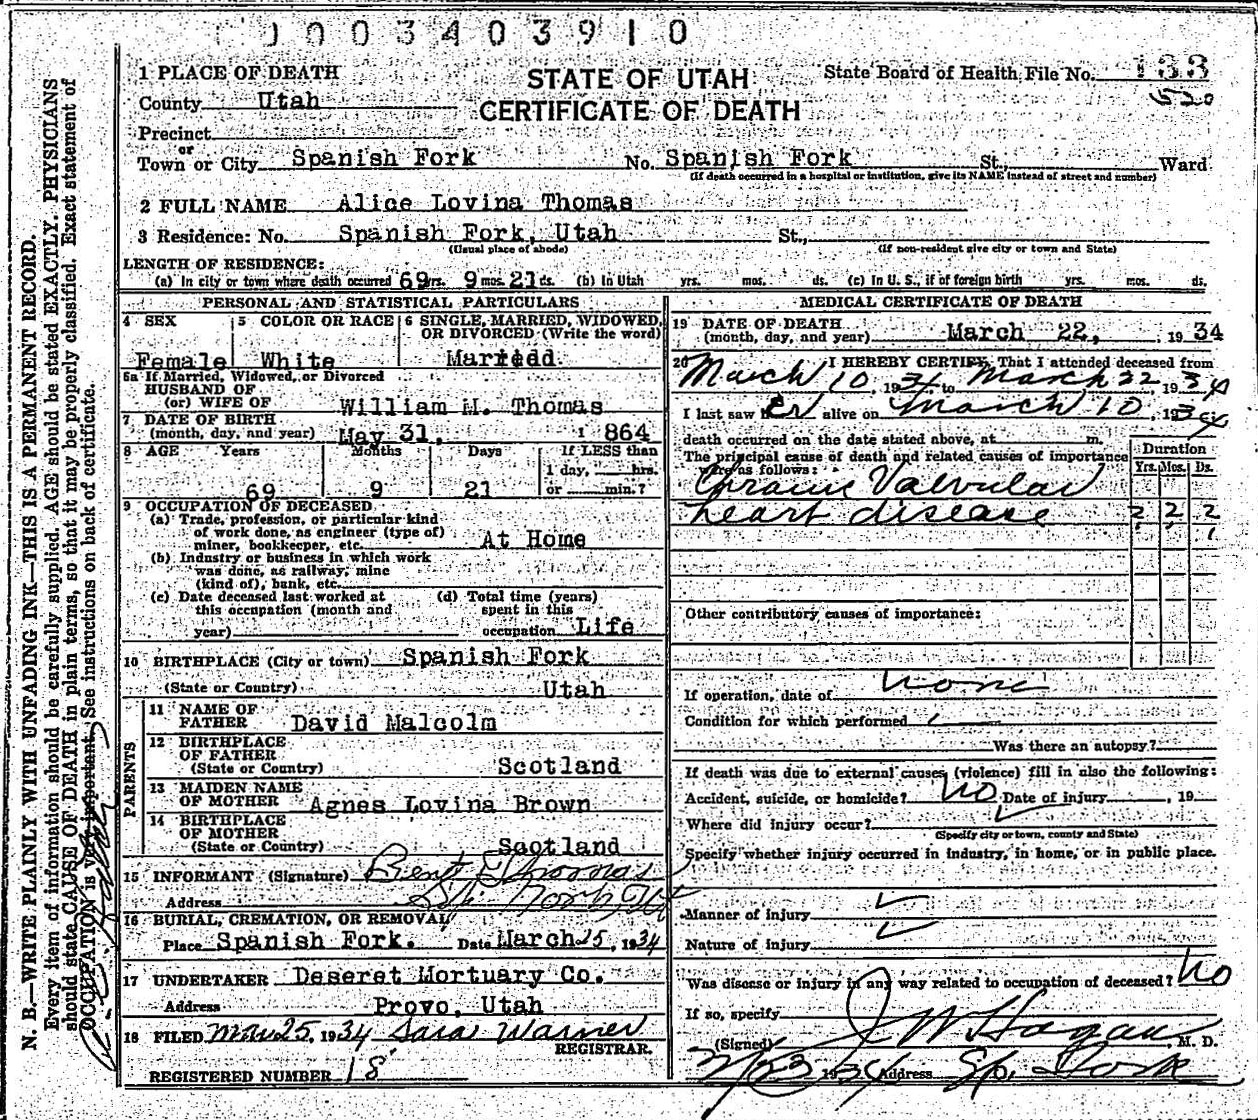 1003403910
1 PLACE OF DEATH
STATE OF UTAH
CERTIFICATE OF DEATH
State Board of Health File No. 133
530
County Utah
Precinct
or
Town or City Spanish Fork No. Spanish Fork St. Ward
(If death occurred in a hospital or institution, give its NAME instead of street and number)
2 FULL NAME Alice Lovina Thomas
3 Residence: No. Spanish Fork, Utah St.,
(Usual place of abode) (If non-resident give city or town and State)
LENGTH OF RESIDENCE:
(a) In city or town where death occurred 69 yrs. 9 mos. 21 ds. (b) In Utah yrs. mos. ds. (c) In U. S., if of foreign birth yrs. mos. ds.
PERSONAL AND STATISTICAL PARTICULARS
4 SEX 5 COLOR OR RACE 6 SINGLE, MARRIED, WIDOWED, OR DIVORCED (Write the word)
Female White Married
6a If Married, Widowed, or Divorced
HUSBAND OF
(or) WIFE OF William M. Thomas
7 DATE OF BIRTH
(month, day, and year) May 31, 1864
8 AGE Years Months Days If LESS than
1 day, hrs.
or min.?
69 9 21
9 OCCUPATION OF DECEASED
(a) Trade, profession, or particular kind
of work done, as engineer (type of)
miner, bookkeeper, etc. At Home
(b) Industry or business in which work
was done, as railway, mine
(kind of), bank, etc.
(c) Date deceased last worked at
this occupation (month and
year)
(d) Total time (years)
spent in this
occupation Life
10 BIRTHPLACE (City or town) Spanish Fork
(State or Country) Utah
PARENTS
11 NAME OF
FATHER David Malcolm
12 BIRTHPLACE
OF FATHER
(State or Country) Scotland
13 MAIDEN NAME
OF MOTHER Agnes Lovina Brown
14 BIRTHPLACE
OF MOTHER
(State or Country) Scotland
15 INFORMANT (Signature) Thomas
Address
16 BURIAL, CREMATION, OR REMOVAL
Place Spanish Fork. Date March 25, 1934
17 UNDERTAKER Deseret Mortuary Co.
Address Provo, Utah
18 FILED Mar 25, 1934 Sara Warner
REGISTRAR.
REGISTERED NUMBER 18
MEDICAL CERTIFICATE OF DEATH
19 DATE OF DEATH
(month, day, and year) March 22, 1934
20 I HEREBY CERTIFY, That I attended deceased from
March 10, 1934 to March 22, 1934
I last saw her alive on March 10, 1934
death occurred on the date stated above, at m.
The principal cause of death and related causes of importance
were as follows:
Duration
Yrs. Mos. Ds.
Valvular
heart disease 2 2 2
Other contributory causes of importance:
If operation, date of none
Condition for which performed
Was there an autopsy?
If death was due to external causes (violence) fill in also the following:
Accident, suicide, or homicide? No Date of injury , 19
Where did injury occur?
(Specify city or town, county and State)
Specify whether injury occurred in industry, in home, or in public place.
Manner of injury
Nature of injury
Was disease or injury in any way related to occupation of deceased? No
If so, specify
(Signed) J W Hagan, M. D.
1934 Address Sp. Fork
N. B.—WRITE PLAINLY WITH UNFADING INK—THIS IS A PERMANENT RECORD.
Every item of information should be carefully supplied. AGE should be stated EXACTLY. PHYSICIANS
should state CAUSE OF DEATH in plain terms, so that it may be properly classified. Exact statement of
OCCUPATION is very important. See instructions on back of certificate.